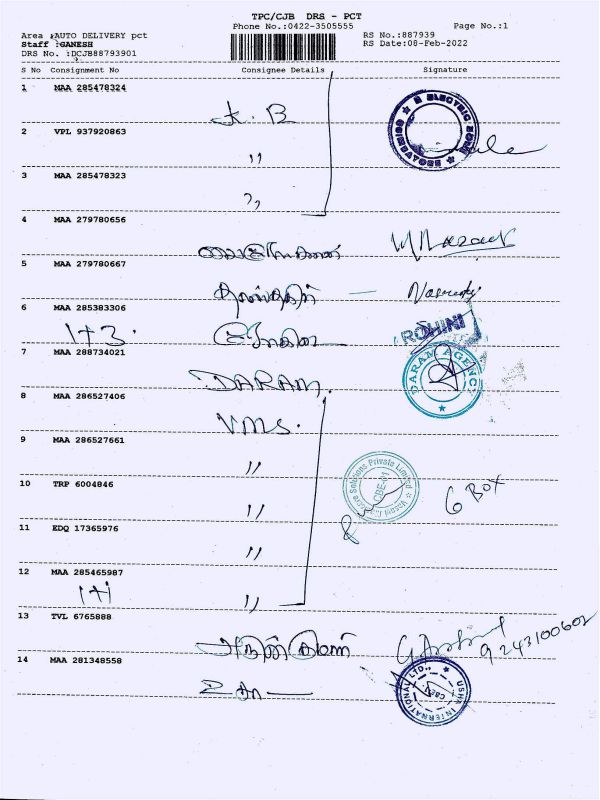 TPC/CJB DRS - PCT
Phone No.:0422-3505555
Page No.:1
Area :AUTO DELIVERY pct
RS No.:887939
Staff :GANESH
RS Date:08-Feb-2022
DRS No. :DCJB88793901
S No Consignment No Consignee Details Signature
1 MAA 285478324
K. B
2 VPL 937920863
"
3 MAA 285478323
"
4 MAA 279780656
5 MAA 279780667
6 MAA 285383306
1+3.
ROHINI
7 MAA 288734021
DARAM
DARAM AGENCY
8 MAA 286527406
VMS.
9 MAA 286527661
"
10 TRP 6004846
" 6 Box
Solutions Private Limited
CBE-01
11 EDQ 17365976
"
12 MAA 285465987
1+1 "
13 TVL 6765888
9243100602
14 MAA 281348558
USHA INTERNATIONAL LTD.,